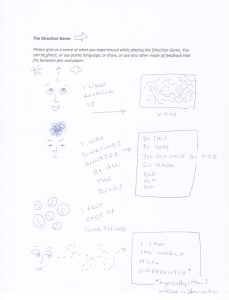 The Direction Game
Please give us a sense of what you experienced while playing the Direction Game. You
can be direct, or use poetic language, or draw, or use any other mode of feedback that
fits between pen and paper.
I LIKED
LOOKING
UP
VIEW
I WAS
SOMETIMES
ANNOYED
BY ALL
THE
RULES
DO THIS
DO THAT
YOU CAN ONLY DO X Y Z
GO BACK
BLA
I FELT
PART OF
SOMETHING
I SAW
THE WORLD
A BIT
DIFFERENTLY*
*especially when I
walked in